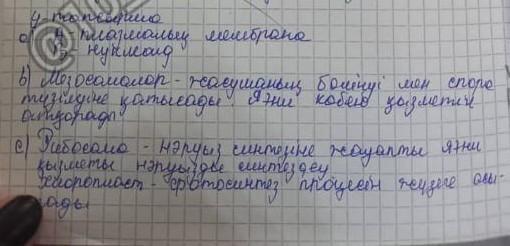 4-тапсырма
а) А - плазмалық мембрана
В - нуклеоид
b) Мезосомалар - жасушаның бөлінуі мен спора
түзілуіне қатысады яғни көбею қызметін
атқарады
с) Рибосома - нәруыз синтезіне жауапты яғни
қызметы нәруызды синтездеу
Хлоропласт - фотосинтез процесін жүзеге асы-
рады